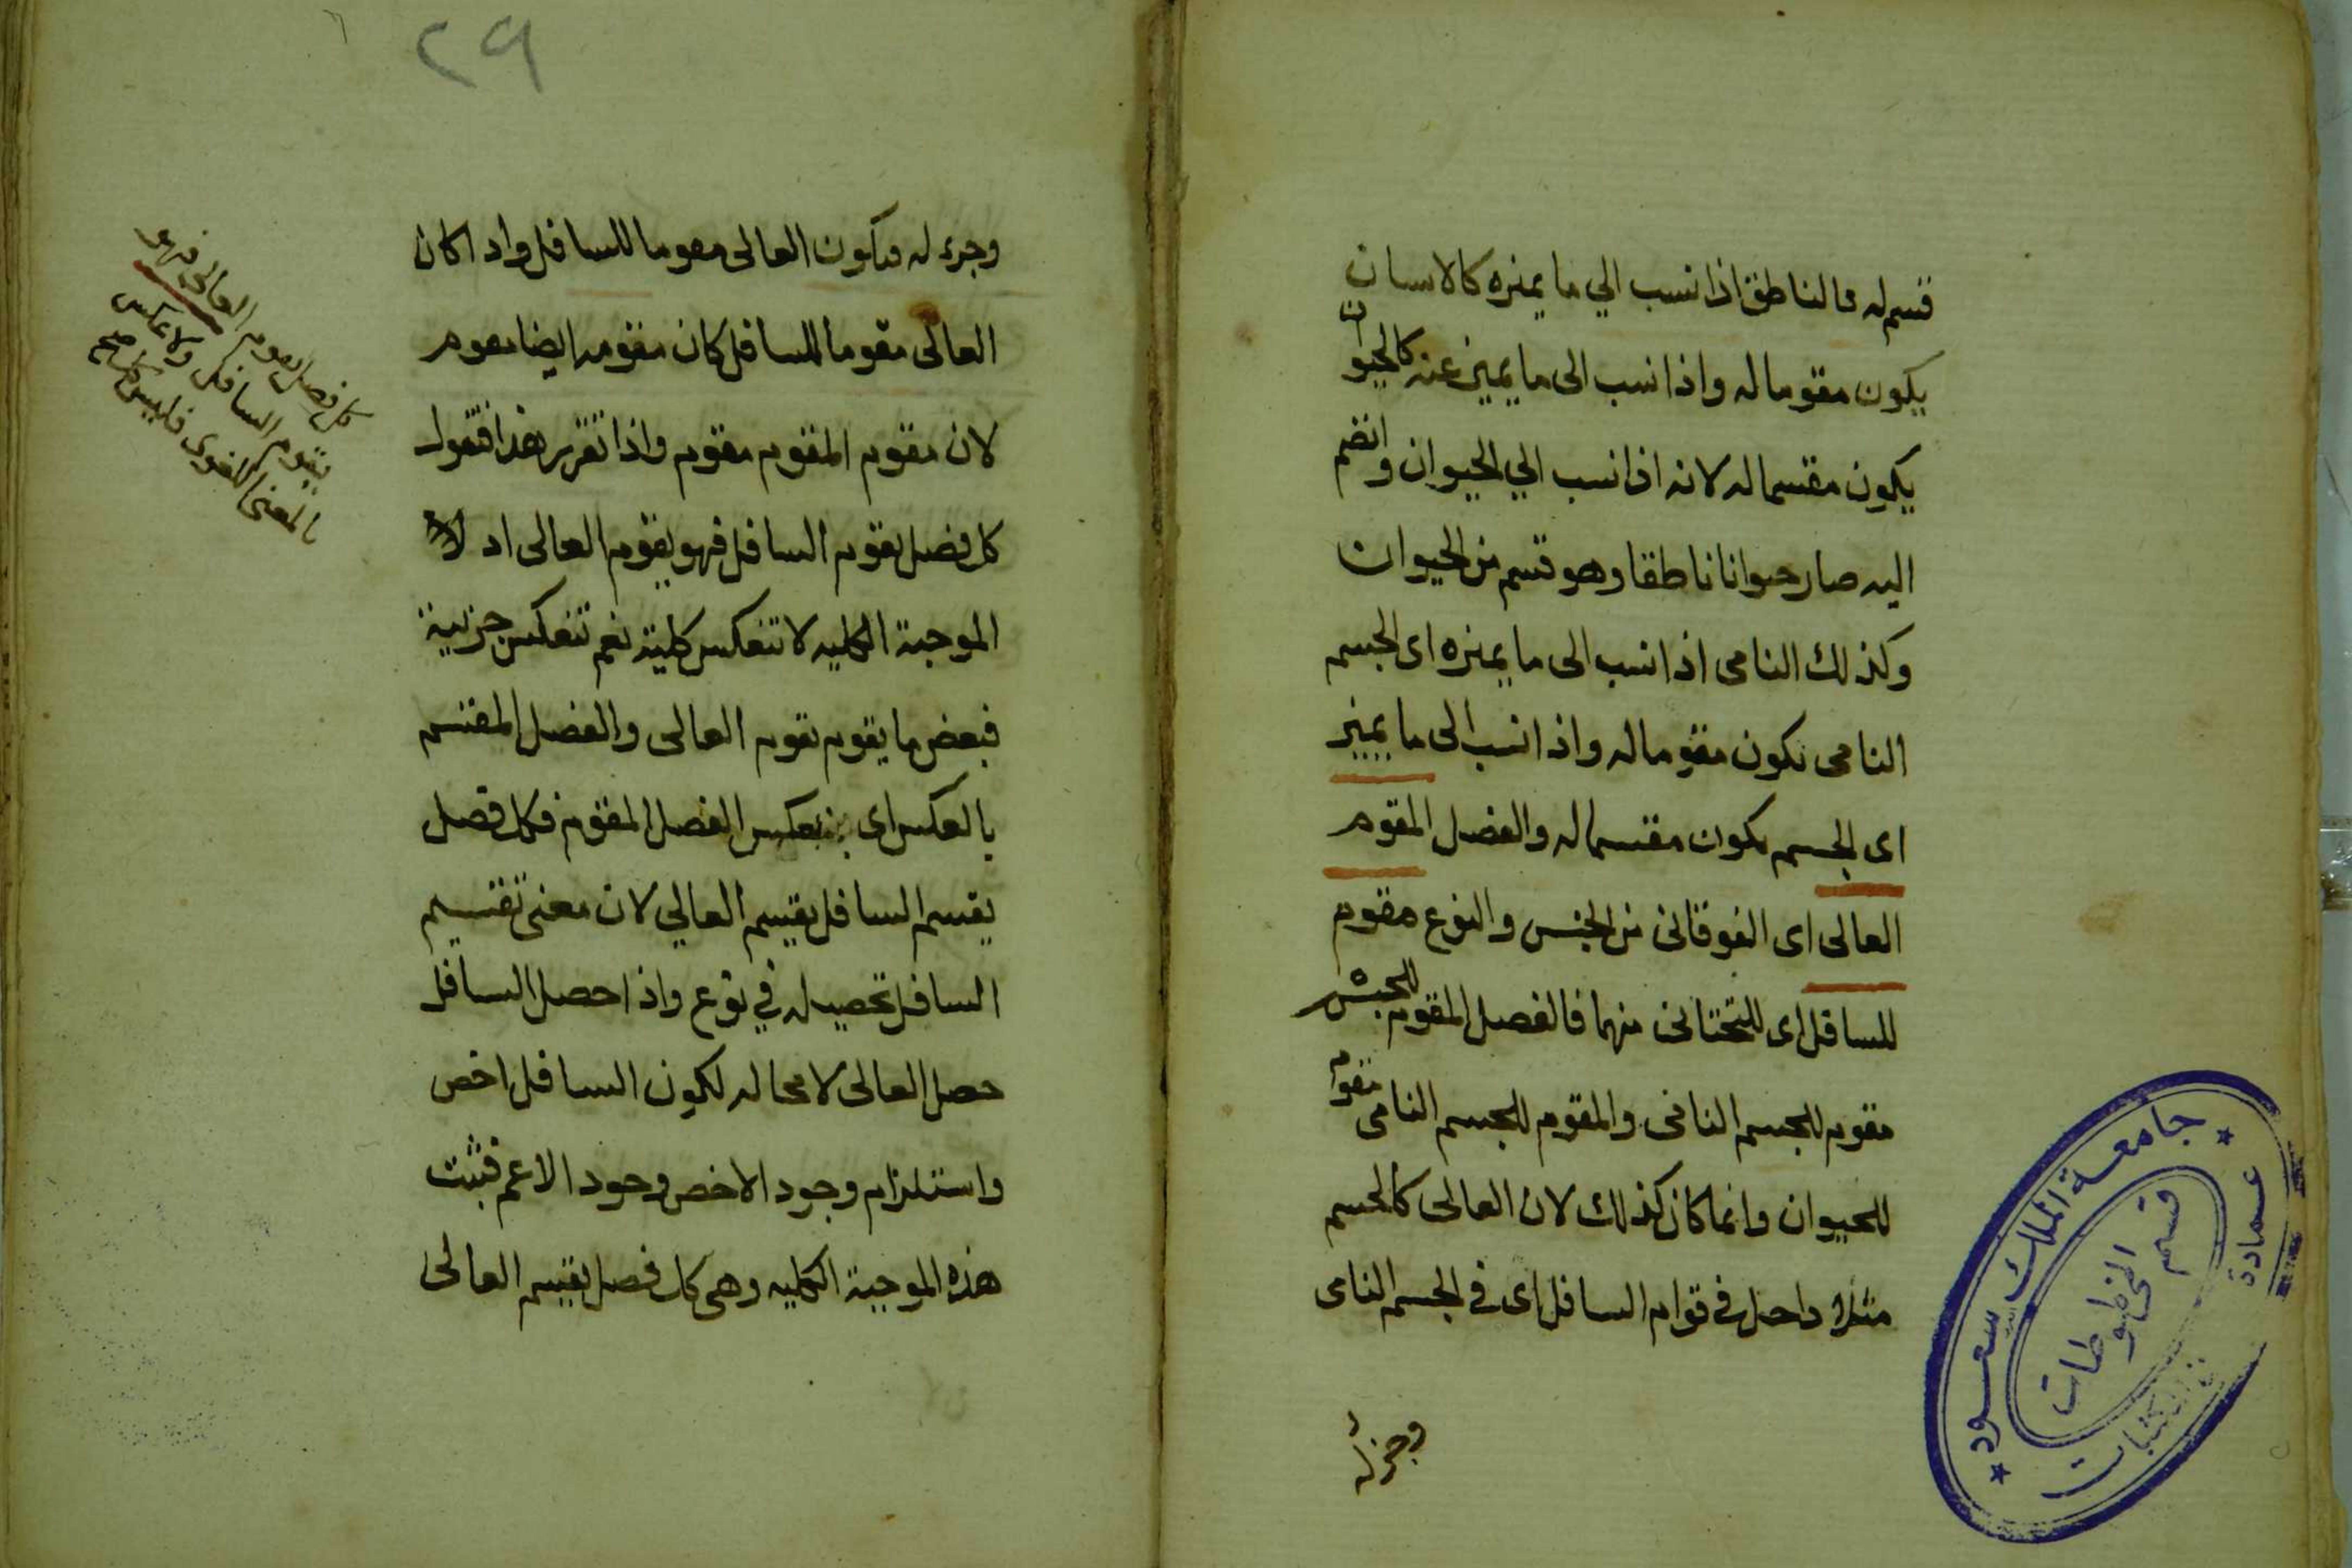 قسم له فالناطق اذا نسب الي ما يميزه كالانسان
يكون مقوما له واذا نسب الى ما يميز عنه كالحيوان
يكون مقسما له لانه اذا نسب الي الحيوان وانضم
اليه صار حيوانا ناطقا وهو قسم من الحيوان
وكذلك النامى اذا نسب الى ما يميزه اى الجسم
النامى يكون مقوما له واذا نسب الى ما يميز
اى الجسم يكون مقسما له والفصل المقوم
العالى اى الفوقانى من الجنس والنوع مقوم
للسافل اى للتحتانى منهما فالفصل المقوم للجنس
مقوم للجسم النامى والمقوم للجسم النامى مقوم
للحيوان وانما كان كذلك لان العالى كالجسم
مثلا داخل فى قوام السافل اى فى الجسم النامى
وجزء له
٢٩
وجزء له فيكون العالى مقوما للسافل واذا كان
العالى مقوما للسافل كان مقومه ايضا مقوم
لان مقوم المقوم مقوم واذا تقرر هذا فنقول
كل فصل يقوم السافل فهو يقوم العالى اذ لا
الموجبة الكليه لا تنعكس كلية نعم تنعكس جزئية
فبعض ما يقوم يقوم العالى والفصل المقسم
بالعكس اى بعكس الفصل المقوم فكل فصل
يقسم السافل يقسم العالي لان معنى تقسيم
السافل تحصيله في نوع واذا حصل السافل
حصل العالى لا محاله لكون السافل اخص
واستلزام وجود الاخص وجود الاعم فثبت
هذه الموجبة الكليه وهى كل فصل يقسم العالى
كل فصل يقوم العالى فهو
يقوم السافل ولا عكس
بالمعنى اللغوى فليس كل
جامعة الملك سعود
عمادة
المكتبات
قسم المخطوطات